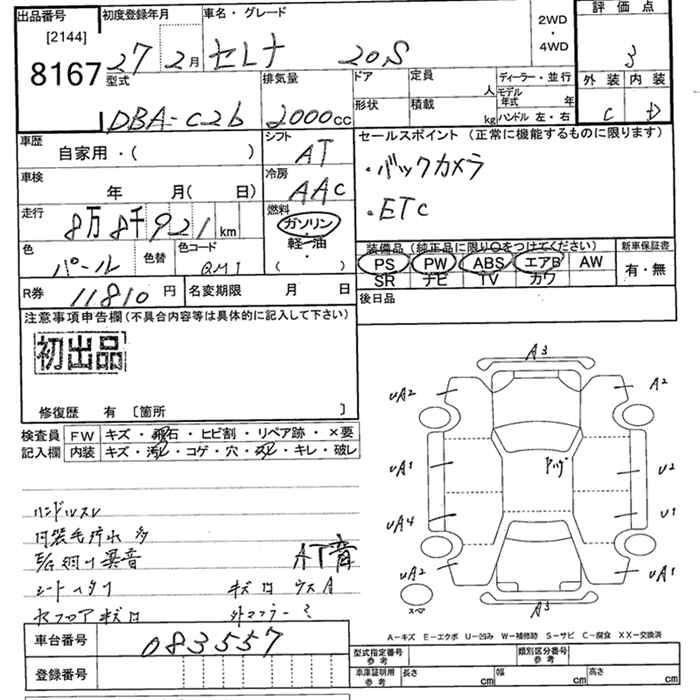 出品番号 初度登録年月 車名・グレード 2WD・4WD 評価点
[2144]
8167 27年2月 セレナ 20S 3
型式 排気量 ドア 定員 人 ディーラー・並行 外装 内装
DBA-C26 2000cc 形状 積載 kg モデル年式 年 ハンドル 左・右 C D
車歴 自家用・( ) シフト AT
セールスポイント(正常に機能するものに限ります)
・バックカメラ
・ETC
車検 年 月( 日) 冷房 AAC
走行 8万8千921km 燃料 ガソリン・軽油・( )
色 パール 色替 色コード QM1
装備品(純正品に限り○をつけてください) 新車保証書
PS PW ABS エアB AW 有・無
SR ナビ TV カワ
R券 11810円 名変期限 月 日
後日品
注意事項申告欄(不具合内容等は具体的に記入して下さい)
初出品
修復歴 有 [箇所 ]
検査員 FW キズ・飛石・ヒビ割・リペア跡・×要
記入欄 内装 キズ・汚レ・コゲ・穴・スレ・キレ・破レ
ハンドルスレ
内装毛
異音
AT音
シート
キズ
車台番号 083557
登録番号
A3
UA2 A2
UA1 U2
UA4 U1
UA2 UA1
A3
スペ
A-キズ E-エクボ U-凹み W-補修跡 S-サビ C-腐食 XX-交換済
型式指定番号 参考 類別区分番号 参考
車庫証明用 参考 長さ cm 幅 cm 高さ cm